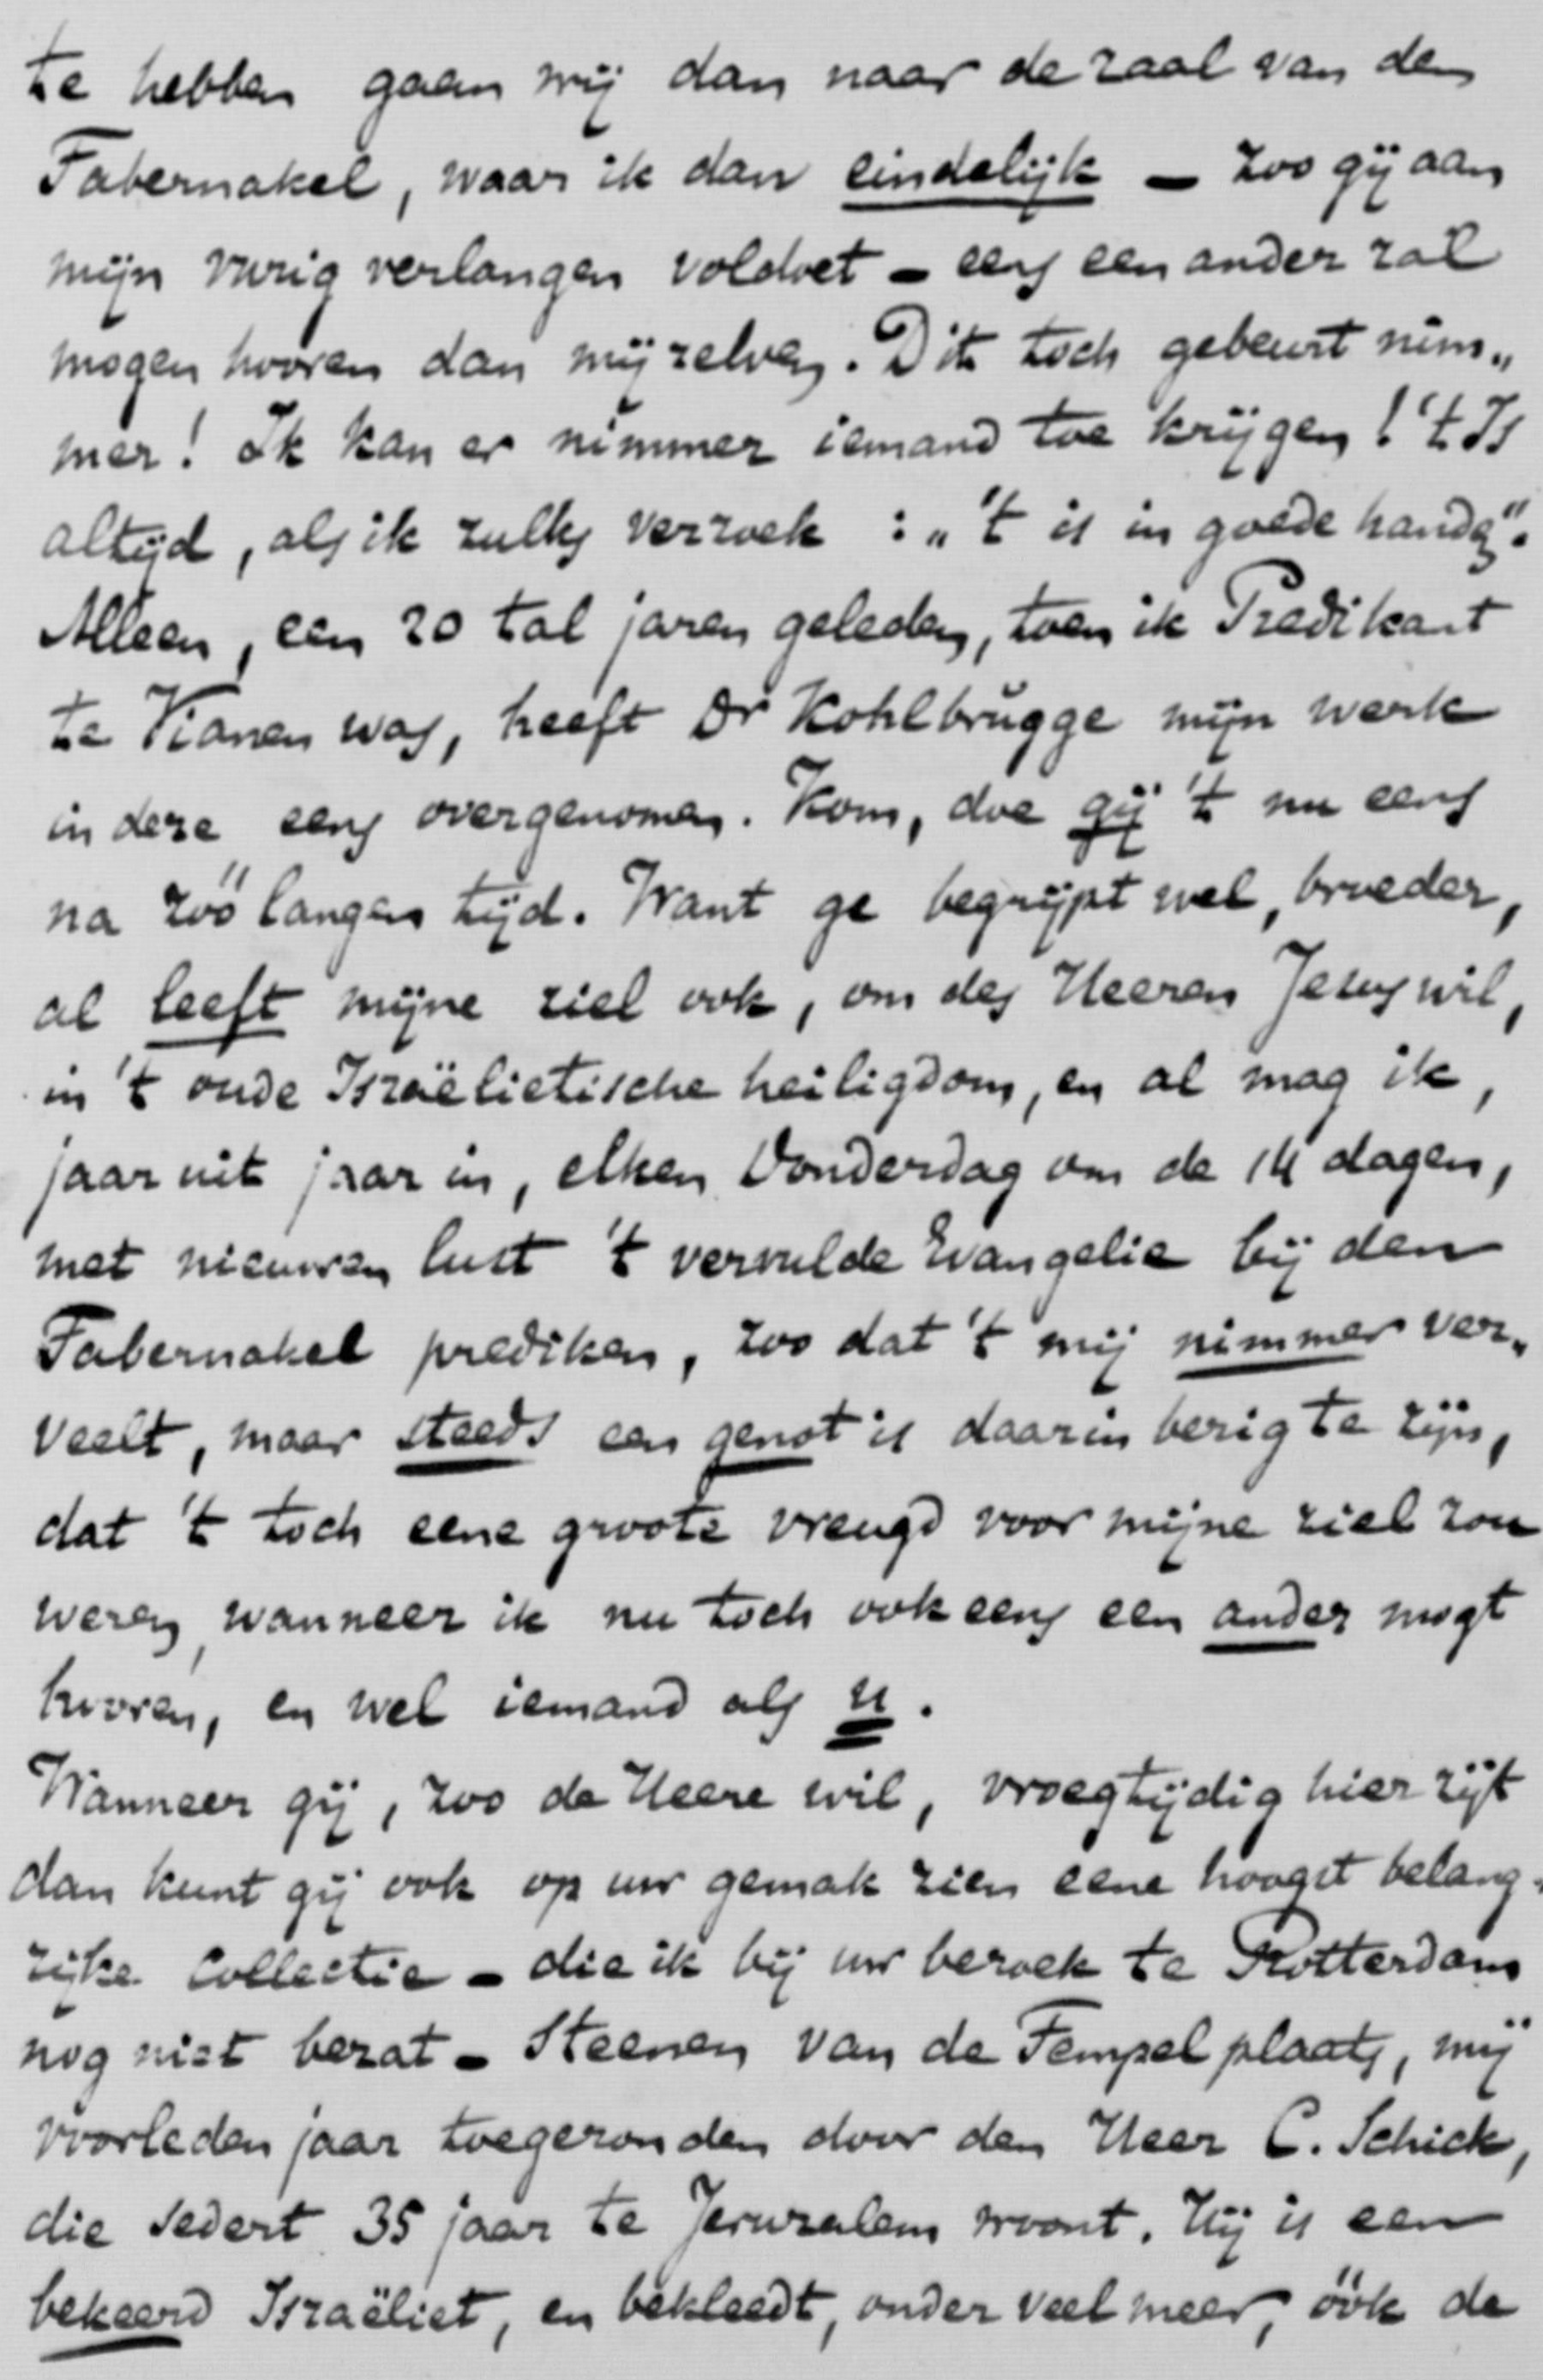 te hebben gaan wij dan naar de zaal van den
Tabernakel, waar ik dan eindelijk – zoo gij aan
mijn vurig verlangen voldoet – eens een ander zal
mogen hooren dan mijzelven. Dit toch gebeurt nim„
mer! Ik kan er nimmer iemand toe krijgen! 't Is
altijd, als ik zulks verzoek : „'t is in goede handen".
Alleen, een 20 tal jaren geleden, toen ik Predikant
te Vianen was, heeft Dr Kohlbrügge mijn werk
in deze eens overgenomen. Kom, doe gij 't nu eens
na zóó langen tijd. Want ge begrijpt wel, broeder,
al leeft mijne ziel ook, om des Heeren Jezus wil,
in 't oude Israëlietische heiligdom, en al mag ik,
jaar uit jaar in, elken Donderdag om de 14 dagen,
met nieuwen lust 't vervulde Evangelie bij den
Tabernakel prediken, zoo dat 't mij nimmer ver„
veelt, maar steeds een genot is daarin bezig te zijn,
dat 't toch eene groote vreugd voor mijne ziel zou
wezen, wanneer ik nu toch ook eens een ander mogt
hooren, en wel iemand als u.
Wanneer gij, zoo de Heere wil, vroegtijdig hier zijt
dan kunt gij ook op uw gemak zien eene hoogst belang-
rijke Collectie – die ik bij uw bezoek te Rotterdam
nog niet bezat – Steenen van de Tempelplaats, mij
voorleden jaar toegezonden door den Heer C. Schick,
die sedert 35 jaar te Jeruzalem woont. Hij is een
bekeerd Israëliet, en bekleedt, onder veel meer, óók de